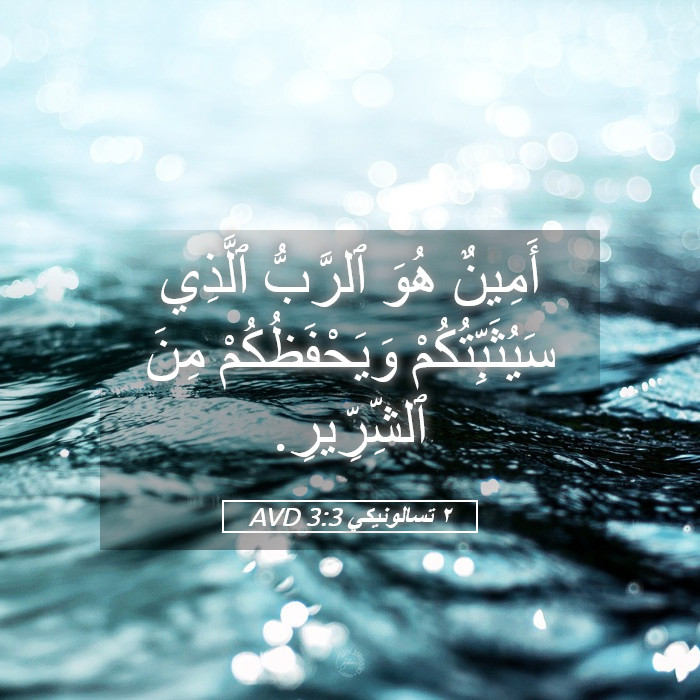 أَمِينٌ هُوَ ٱلرَّبُّ ٱلَّذِي
سَيُثَبِّتُكُمْ وَيَحْفَظُكُمْ مِنَ
ٱلشِّرِّيرِ.
٢ تسالونيكي 3:3 AVD